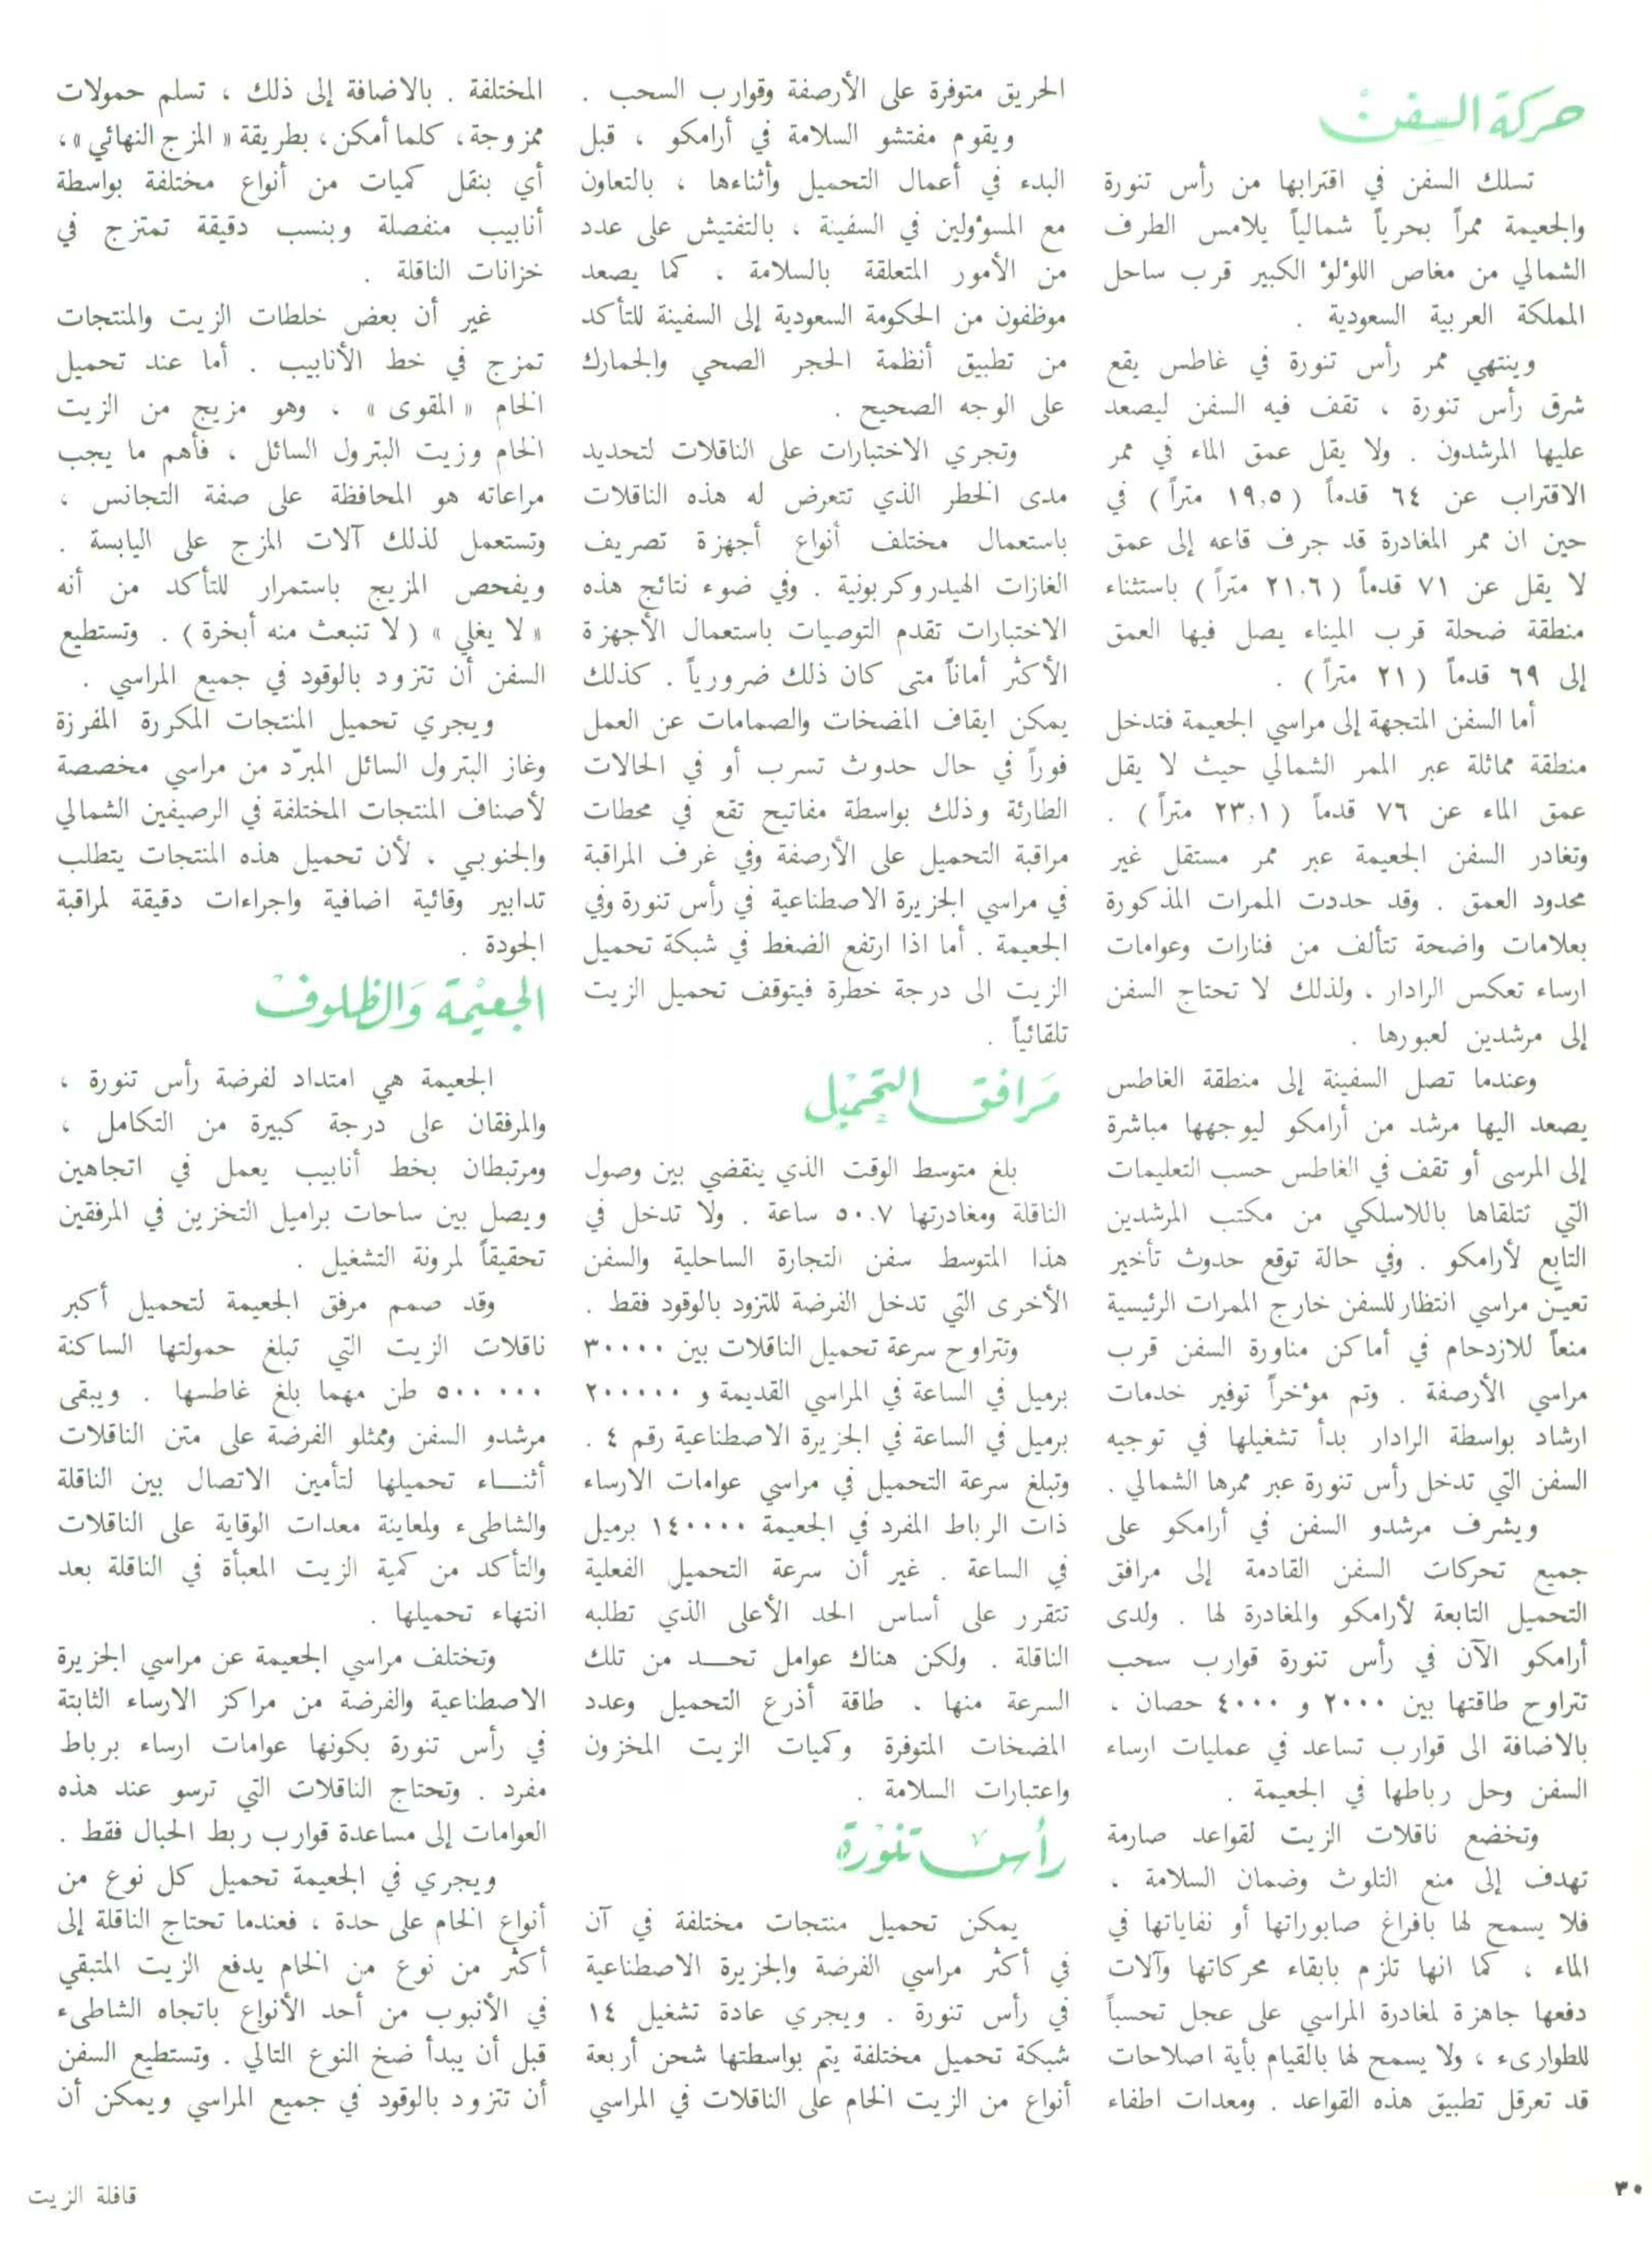 حركة السفن
تسلك السفن في اقترابها من رأس تنورة
والجعيمة ممراً بحرياً شمالياً يلامس الطرف
الشمالي من مغاص اللوٴلوٴ الكبير قرب ساحل
المملكة العربية السعودية .
وينتهي ممر رأس تنورة في غاطس يقع
شرق رأس تنورة ، تقف فيه السفن ليصعد
عليها المرشدون . ولا يقل عمق الماء في ممر
الاقتراب عن ٦٤ قدماً ( ١٩,٥ متراً ) في
حين ان ممر المغادرة قد جرف قاعه إلى عمق
لا يقل عن ٧١ قدماً ( ٢١,٦ متراً ) باستثناء
منطقة ضحلة قرب الميناء يصل فيها العمق
إلى ٦٩ قدماً ( ٢١ متراً ) .
أما السفن المتجهة إلى مراسي الجعيمة فتدخل
منطقة مماثلة عبر الممر الشمالي حيث لا يقل
عمق الماء عن ٧٦ قدماً ( ٢٣,١ متراً ) .
وتغادر السفن الجعيمة عبر ممر مستقل غير
محدود العمق . وقد حددت الممرات المذكورة
بعلامات واضحة تتألف من فنارات وعوامات
ارساء تعكس الرادار ، ولذلك لا تحتاج السفن
إلى مرشدين لعبورها .
وعندما تصل السفينة إلى منطقة الغاطس
يصعد اليها مرشد من أرامكو ليوجهها مباشرة
إلى المرسى أو تقف في الغاطس حسب التعليمات
التي تتلقاها باللاسلكي من مكتب المرشدين
التابع لأرامكو . وفي حالة توقع حدوث تأخير
تعيّن مراسي انتظار للسفن خارج الممرات الرئيسية
منعاً للازدحام في أماكن مناورة السفن قرب
مراسي الأرصفة . وتم موٴخراً توفير خدمات
ارشاد بواسطة الرادار بدأ تشغيلها في توجيه
السفن التي تدخل رأس تنورة عبر ممرها الشمالي .
ويشرف مرشدو السفن في أرامكو على
جميع تحركات السفن القادمة إلى مرافق
التحميل التابعة لأرامكو والمغادرة لها . ولدى
أرامكو الآن في رأس تنورة قوارب سحب
تتراوح طاقتها بين ٢٠٠٠ و ٤٠٠٠ حصان ،
بالاضافة الى قوارب تساعد في عمليات ارساء
السفن وحل رباطها في الجعيمة .
وتخضع ناقلات الزيت لقواعد صارمة
تهدف إلى منع التلوث وضمان السلامة ،
فلا يسمح لها بافراغ صابوراتها أو نفاياتها في
الماء ، كما انها تلزم بابقاء محركاتها وآلات
دفعها جاهزة لمغادرة المراسي على عجل تحسباً
للطوارىء ، ولا يسمح لها بالقيام بأية اصلاحات
قد تعرقل تطبيق هذه القواعد . ومعدات اطفاء
الحريق متوفرة على الأرصفة وقوارب السحب .
ويقوم مفتشو السلامة في أرامكو ، قبل
البدء في أعمال التحميل وأثناءها ، بالتعاون
مع المسوٴولين في السفينة ، بالتفتيش على عدد
من الأمور المتعلقة بالسلامة ، كما يصعد
موظفون من الحكومة السعودية إلى السفينة للتأكد
من تطبيق أنظمة الحجر الصحي والجمارك
على الوجه الصحيح .
وتجري الاختبارات على الناقلات لتحديد
مدى الخطر الذي تتعرض له هذه الناقلات
باستعمال مختلف أنواع أجهزة تصريف
الغازات الهيدروكربونية . وفي ضوء نتائج هذه
الاختبارات تقدم التوصيات باستعمال الأجهزة
الأكثر أماناً متى كان ذلك ضرورياً . كذلك
يمكن ايقاف المضخات والصمامات عن العمل
فوراً في حال حدوث تسرب أو في الحالات
الطارئة وذلك بواسطة مفاتيح تقع في محطات
مراقبة التحميل على الأرصفة وفي غرف المراقبة
في مراسي الجزيرة الاصطناعية في رأس تنورة وفي
الجعيمة . أما اذا ارتفع الضغط في شبكة تحميل
الزيت الى درجة خطرة فيتوقف تحميل الزيت
تلقائياً .
مَرافق التحميْل
بلغ متوسط الوقت الذي ينقضي بين وصول
الناقلة ومغادرتها ٥٠,٧ ساعة . ولا تدخل في
هذا المتوسط سفن التجارة الساحلية والسفن
الأخرى التي تدخل الفرضة للتزود بالوقود فقط .
وتتراوح سرعة تحميل الناقلات بين ٣٠٠٠٠
برميل في الساعة في المراسي القديمة و ٢٠٠٠٠٠
برميل في الساعة في الجزيرة الاصطناعية رقم ٤ .
وتبلغ سرعة التحميل في مراسي عوامات الارساء
ذات الرباط المفرد في الجعيمة ١٤٠٠٠٠ برميل
في الساعة . غير أن سرعة التحميل الفعلية
تتقرر على أساس الحد الأعلى الذي تطلبه
الناقلة . ولكن هناك عوامل تحــد من تلك
السرعة منها ، طاقة أذرع التحميل وعدد
المضخات المتوفرة وكميات الزيت المخزون
واعتبارات السلامة .
رأس تنوْرة
يمكن تحميل منتجات مختلفة في آن
في أكثر مراسي الفرضة والجزيرة الاصطناعية
في رأس تنورة . ويجري عادة تشغيل ١٤
شبكة تحميل مختلفة يتم بواسطتها شحن أربعة
أنواع من الزيت الخام على الناقلات في المراسي
المختلفة . بالاضافة إلى ذلك ، تسلم حمولات
ممزوجة ، كلما أمكن ، بطريقة « المزج النهائي » ،
أي بنقل كميات من أنواع مختلفة بواسطة
أنابيب منفصلة وبنسب دقيقة تمتزج في
خزانات الناقلة .
غير أن بعض خلطات الزيت والمنتجات
تمزج في خط الأنابيب . أما عند تحميل
الخام « المقوى » ، وهو مزيج من الزيت
الخام وزيت البترول السائل ، فأهم ما يجب
مراعاته هو المحافظة على صفة التجانس ،
وتستعمل لذلك آلات المزج على اليابسة .
ويفحص المزيج باستمرار للتأكد من أنه
« لا يغلي » ( لا تنبعث منه أبخرة ) . وتستطيع
السفن أن تتزود بالوقود في جميع المراسي .
ويجري تحميل المنتجات المكررة المفرزة
وغاز البترول السائل المبرّد من مراسي مخصصة
لأصناف المنتجات المختلفة في الرصيفين الشمالي
والجنوبي ، لأن تحميل هذه المنتجات يتطلب
تدابير وقائية اضافية واجراءات دقيقة لمراقبة
الجودة .
الجعيْمة وَالظلوف
الجعيمة هي امتداد لفرضة رأس تنورة ،
والمرفقان على درجة كبيرة من التكامل ،
ومرتبطان بخط أنابيب يعمل في اتجاهين
ويصل بين ساحات براميل التخزين في المرفقين
تحقيقاً لمرونة التشغيل .
وقد صمم مرفق الجعيمة لتحميل أكبر
ناقلات الزيت التي تبلغ حمولتها الساكنة
٥٠٠ ٠٠٠ طن مهما بلغ غاطسها . ويبقى
مرشدو السفن وممثلو الفرضة على متن الناقلات
أثنــاء تحميلها لتأمين الاتصال بين الناقلة
والشاطىء ولمعاينة معدات الوقاية على الناقلات
والتأكد من كمية الزيت المعبأة في الناقلة بعد
انتهاء تحميلها .
وتختلف مراسي الجعيمة عن مراسي الجزيرة
الاصطناعية والفرضة من مراكز الارساء الثابتة
في رأس تنورة بكونها عوامات ارساء برباط
مفرد . وتحتاج الناقلات التي ترسو عند هذه
العوامات إلى مساعدة قوارب ربط الحبال فقط .
ويجري في الجعيمة تحميل كل نوع من
أنواع الخام على حدة ، فعندما تحتاج الناقلة إلى
أكثر من نوع من الخام يدفع الزيت المتبقي
في الأنبوب من أحد الأنواع باتجاه الشاطىء
قبل أن يبدأ ضخ النوع التالي . وتستطيع السفن
أن تتزود بالوقود في جميع المراسي ويمكن أن
٣٠
قافلة الزيت